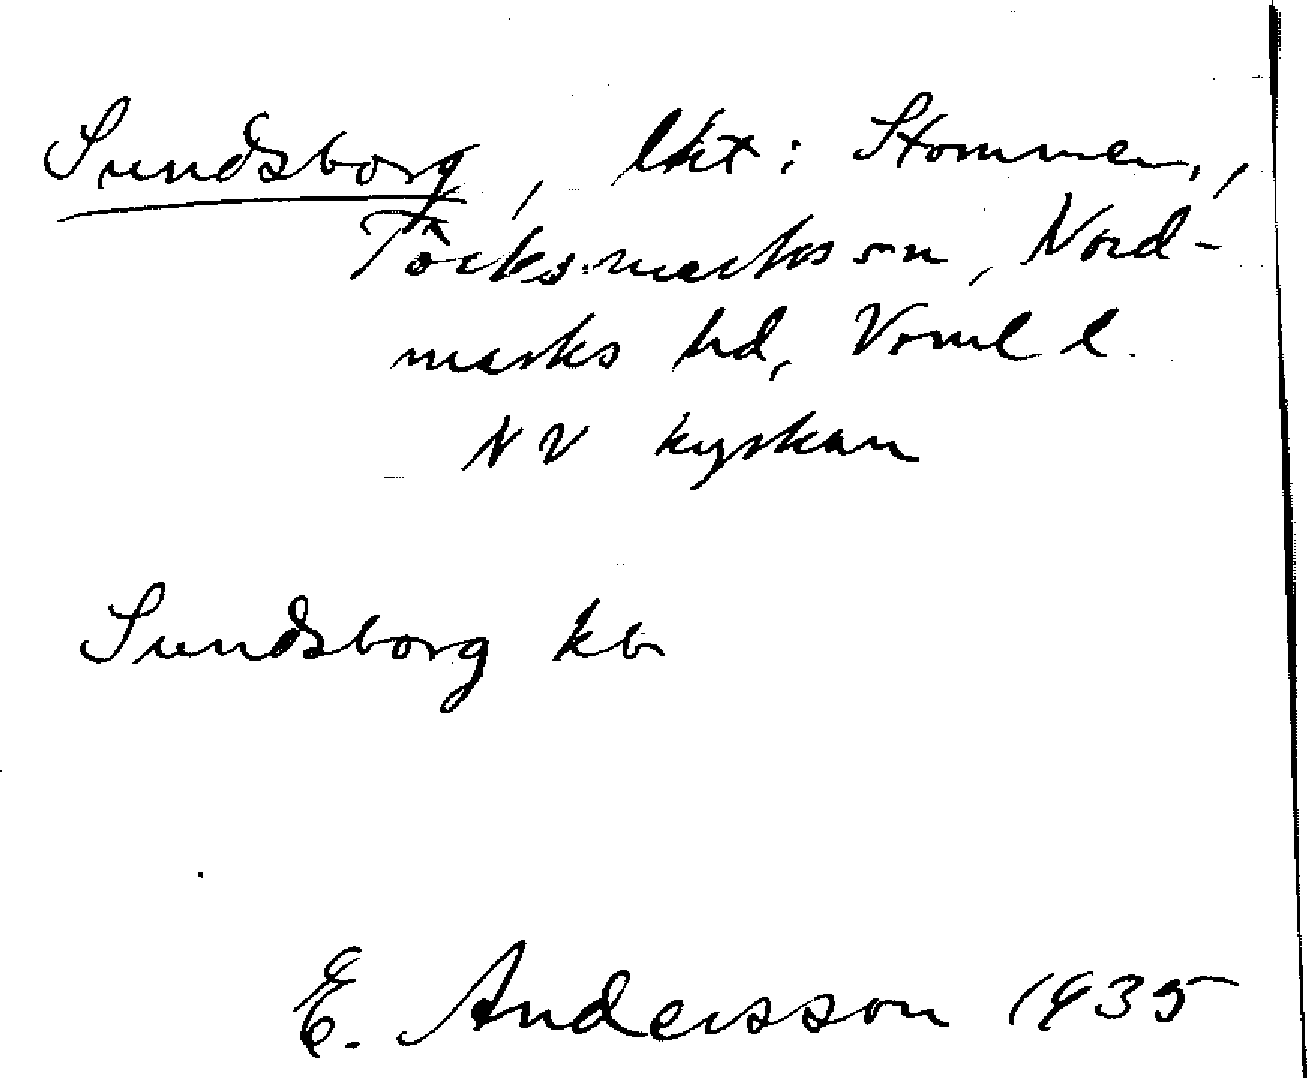 Sundsborg, lkt i Stommen,
Töcksmarks sn, Nord-
marks hd, Värml l.
NV kyrkan
Sundsborg kb
E. Andersson 1935